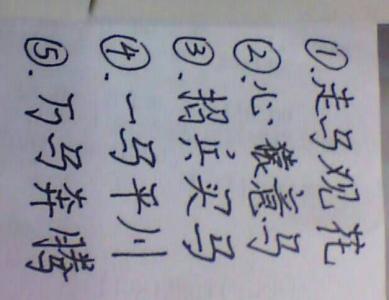 ①.走马观花
②.心猿意马
③.招兵买马
④.一马平川
⑤.万马奔腾